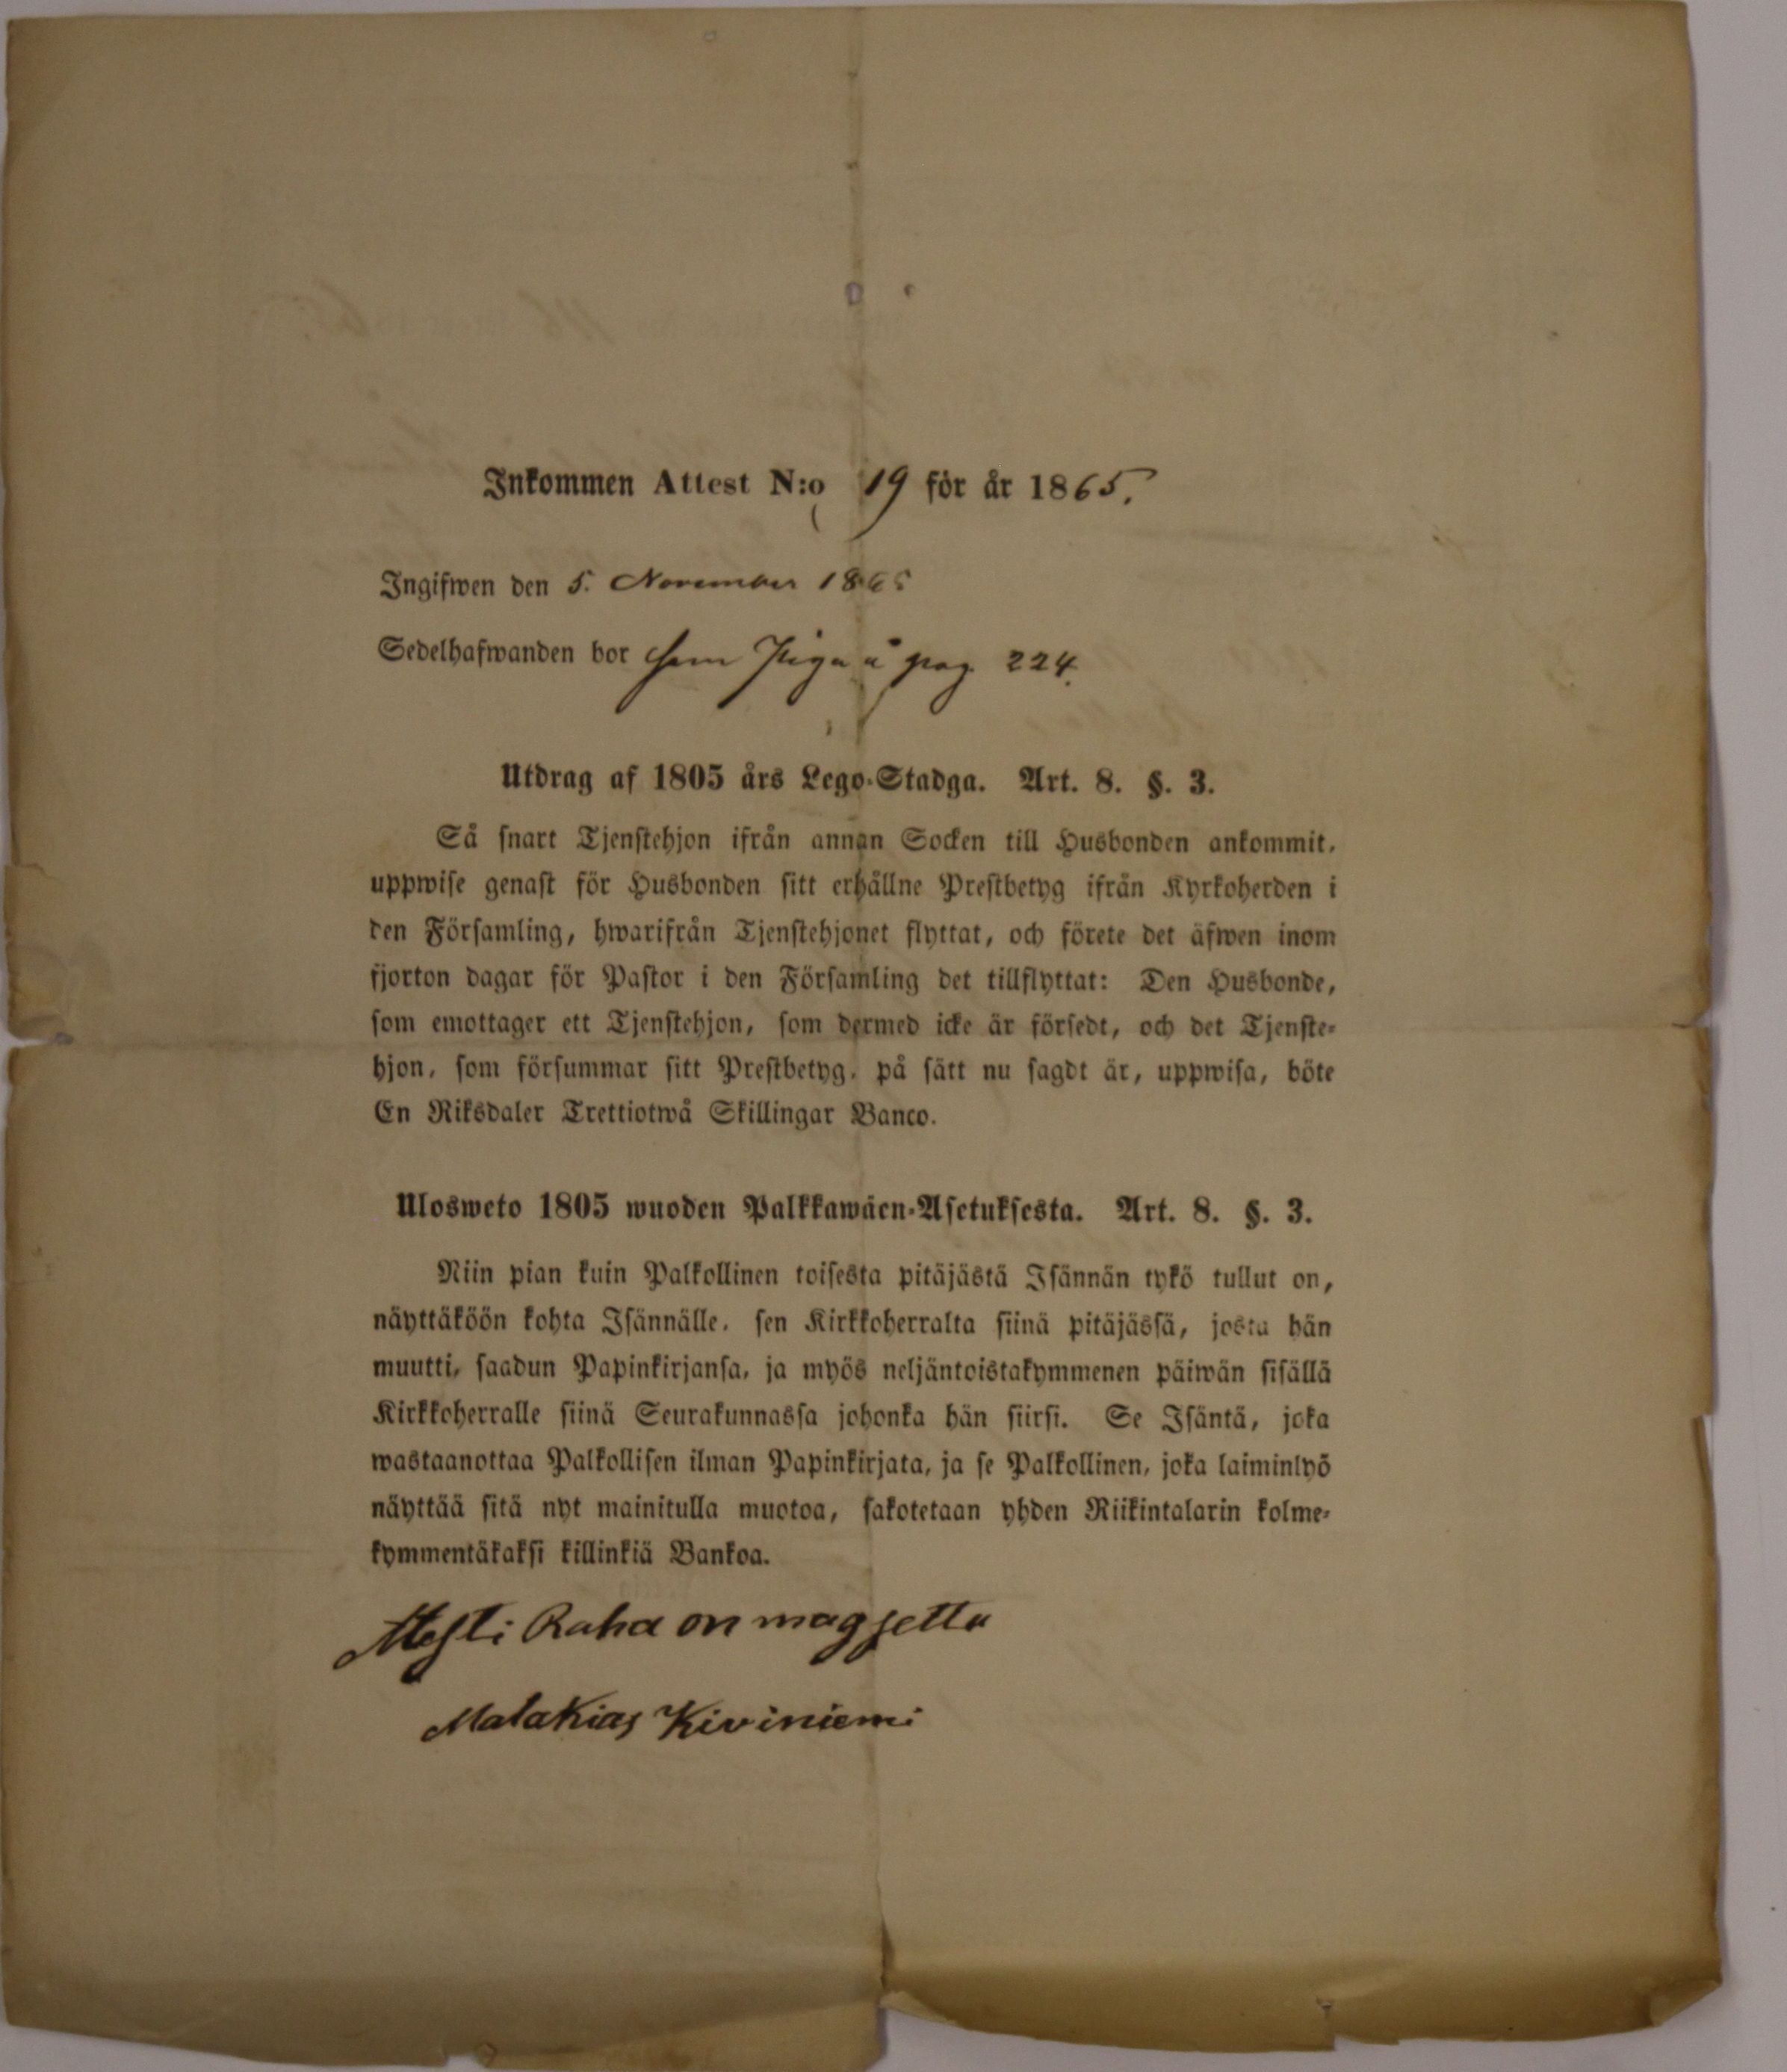 Inkommen Attest N:o 19 för år 1865.
Ingifwen den 5. November 1865
Sedelhafwanden bor som Piga å pag. 224.
Utdrag af 1805 års Lego-Stadga. Art. 8. §. 3.
Så snart Tjenstehjon ifrån annan Socken till Husbonden ankommit,
uppwise genast för Husbonden sitt erhållne Prestbetyg ifrån Kyrkoherden i
den Församling, hwarifrån Tjenstehjonet flyttat, och förete det äfwen inom
fjorton dagar för Pastor i den Församling det tillflyttat: Den Husbonde,
som emottager ett Tjenstehjon, som dermed icke är försedt, och det Tjenste-
hjon, som försummar sitt Prestbetyg, på sätt nu sagdt är, uppwisa, böte
En Riksdaler Trettiotwå Skillingar Banco.
Ulosweto 1805 wuoden Palkkawäen-Asetuksesta. Art. 8. §. 3.
Niin pian kuin Palkollinen toisesta pitäjästä Isännän tykö tullut on,
näyttäköön kohta Isännälle, sen Kirkkoherralta siinä pitäjässä, josta hän
muutti, saadun Papinkirjansa, ja myös neljäntoistakymmenen päiwän sisällä
Kirkkoherralle siinä Seurakunnassa johonka hän siirsi. Se Isäntä, joka
wastaanottaa Palkollisen ilman Papinkirjata, ja se Palkollinen, joka laiminlyö
näyttää sitä nyt mainitulla muotoa, sakotetaan yhden Riikintalarin kolme-
kymmentäkaksi killinkiä Bankoa.
Raha on magsettu
Malakias Kiviniemi